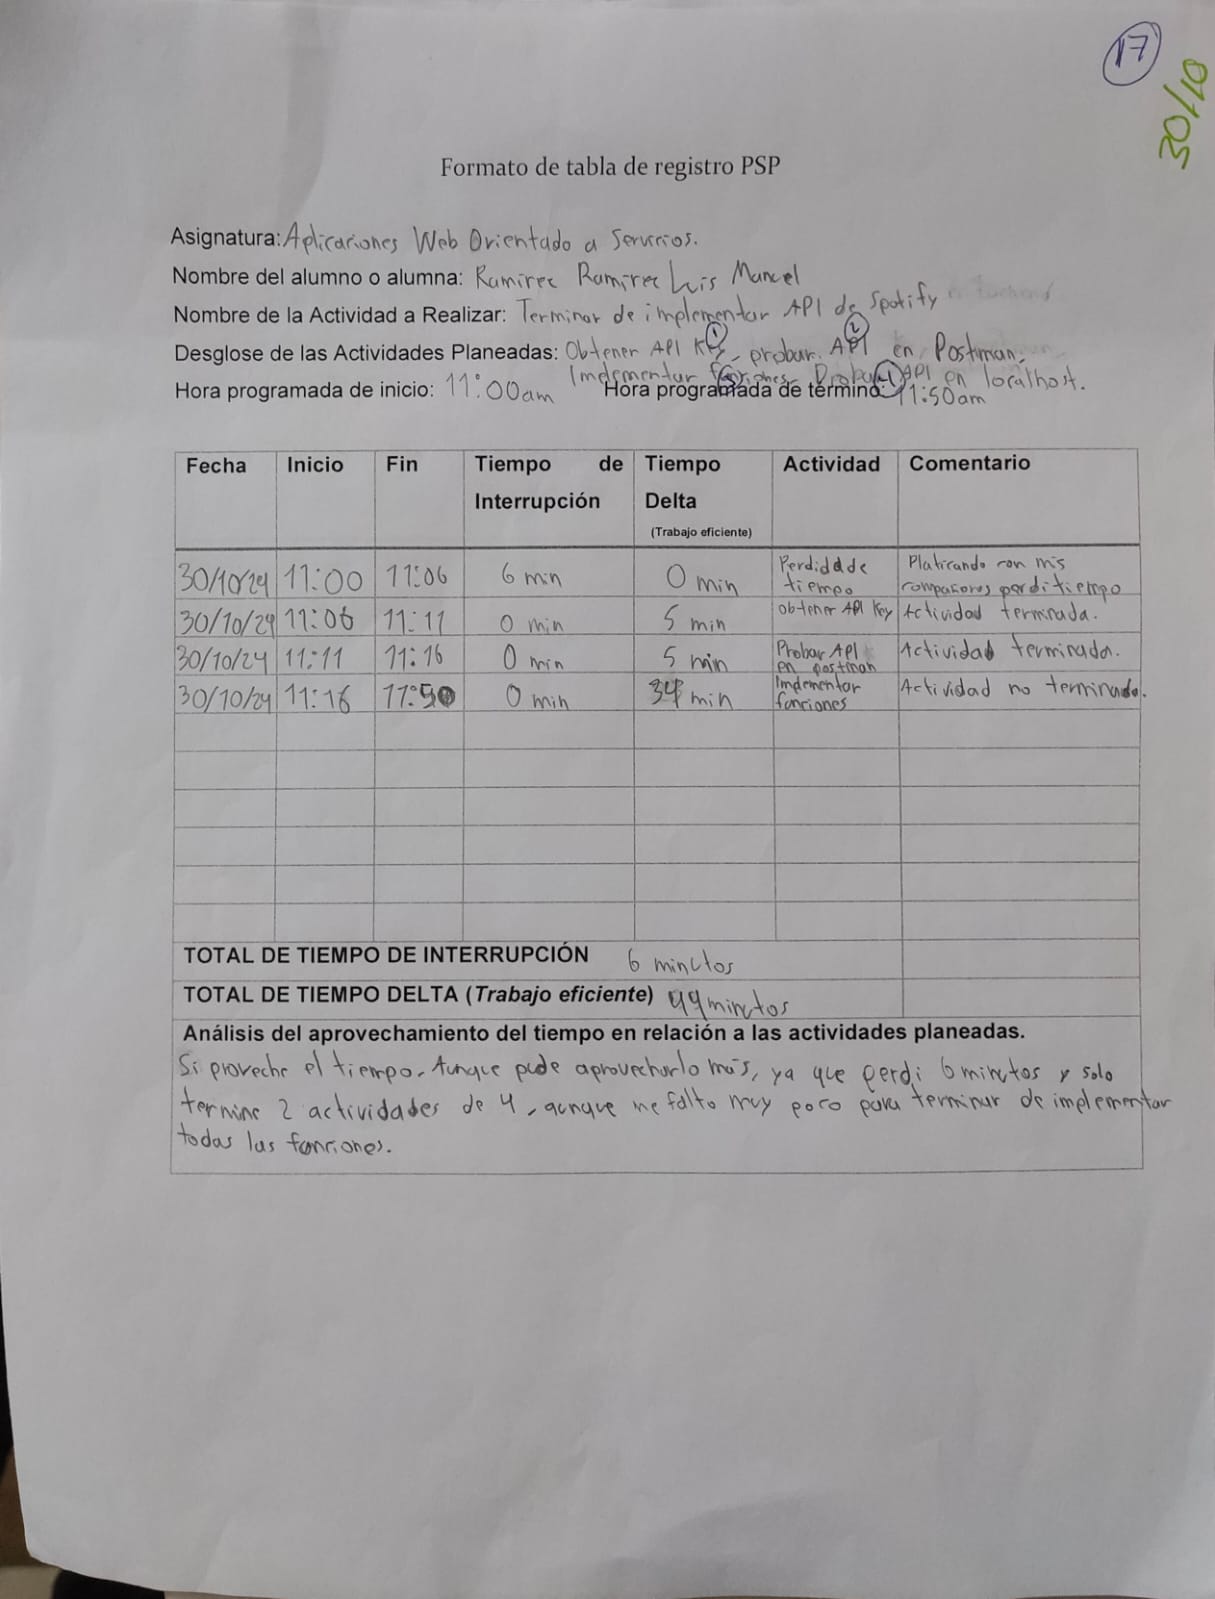 17
30/10
Formato de tabla de registro PSP
Asignatura: Aplicaciones Web Orientado a Servicios.
Nombre del alumno o alumna: Ramirez Ramirez Luis Manuel
Nombre de la Actividad a Realizar: Terminar de implementar API de Spotify
Desglose de las Actividades Planeadas: Obtener API Key, probar API en Postman,
1 2
Implementar funciones, Probar API en localhost.
Hora programada de inicio: 11:00am Hora programada de término: 11:50am
Fecha Inicio Fin Tiempo de Interrupción Tiempo Delta (Trabajo eficiente) Actividad Comentario
30/10/24 11:00 11:06 6 min 0 min Perdida de tiempo Platicando con mis compañeros perdi tiempo
30/10/24 11:06 11:11 0 min 5 min obtener API Key Actividad terminada.
30/10/24 11:11 11:16 0 min 5 min Probar API en postman Actividad terminada.
30/10/24 11:16 11:50 0 min 34 min Implementar funciones Actividad no terminada.
TOTAL DE TIEMPO DE INTERRUPCIÓN 6 minutos
TOTAL DE TIEMPO DELTA (Trabajo eficiente) 44 minutos
Análisis del aprovechamiento del tiempo en relación a las actividades planeadas.
Si proveche el tiempo. Aunque pude aprovecharlo más, ya que perdi 6 minutos y solo
termine 2 actividades de 4, aunque me falto muy poco para terminar de implementar
todas las funciones.